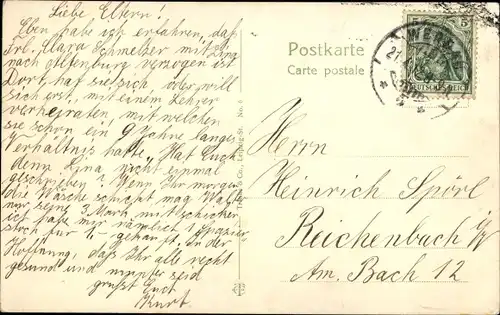 Liebe Eltern!
Eben habe ich erfahren, daß
Frl. Clara Schmelzer mit Lina
nach Altenburg verzogen ist
Dort hat sie sich, oder will
sich erst, mit einem Lehrer
verheiraten, mit welchen
sie schon ein 9 Jahre langes
Verhältnis hatte. Hat Euch
denn Lina nicht einmal
geschrieben? Wenn Ihr morgen
die Wäsche schickt mag Walther
nur seine 3 Mark mitschicken
ich habe mir nämlich 1 Spazier
stock für gekauft. In der
Hoffnung, daß Ihr alle recht
gesund und munter seid
grüßt Euch
Kurt.
Postkarte
Carte postale
5 5
DEUTSCHES REICH
WERDAU
Herrn
Heinrich Spörl
Reichenbach i/V
Am Bach 12
& Co., Leipzig-St. No. 4